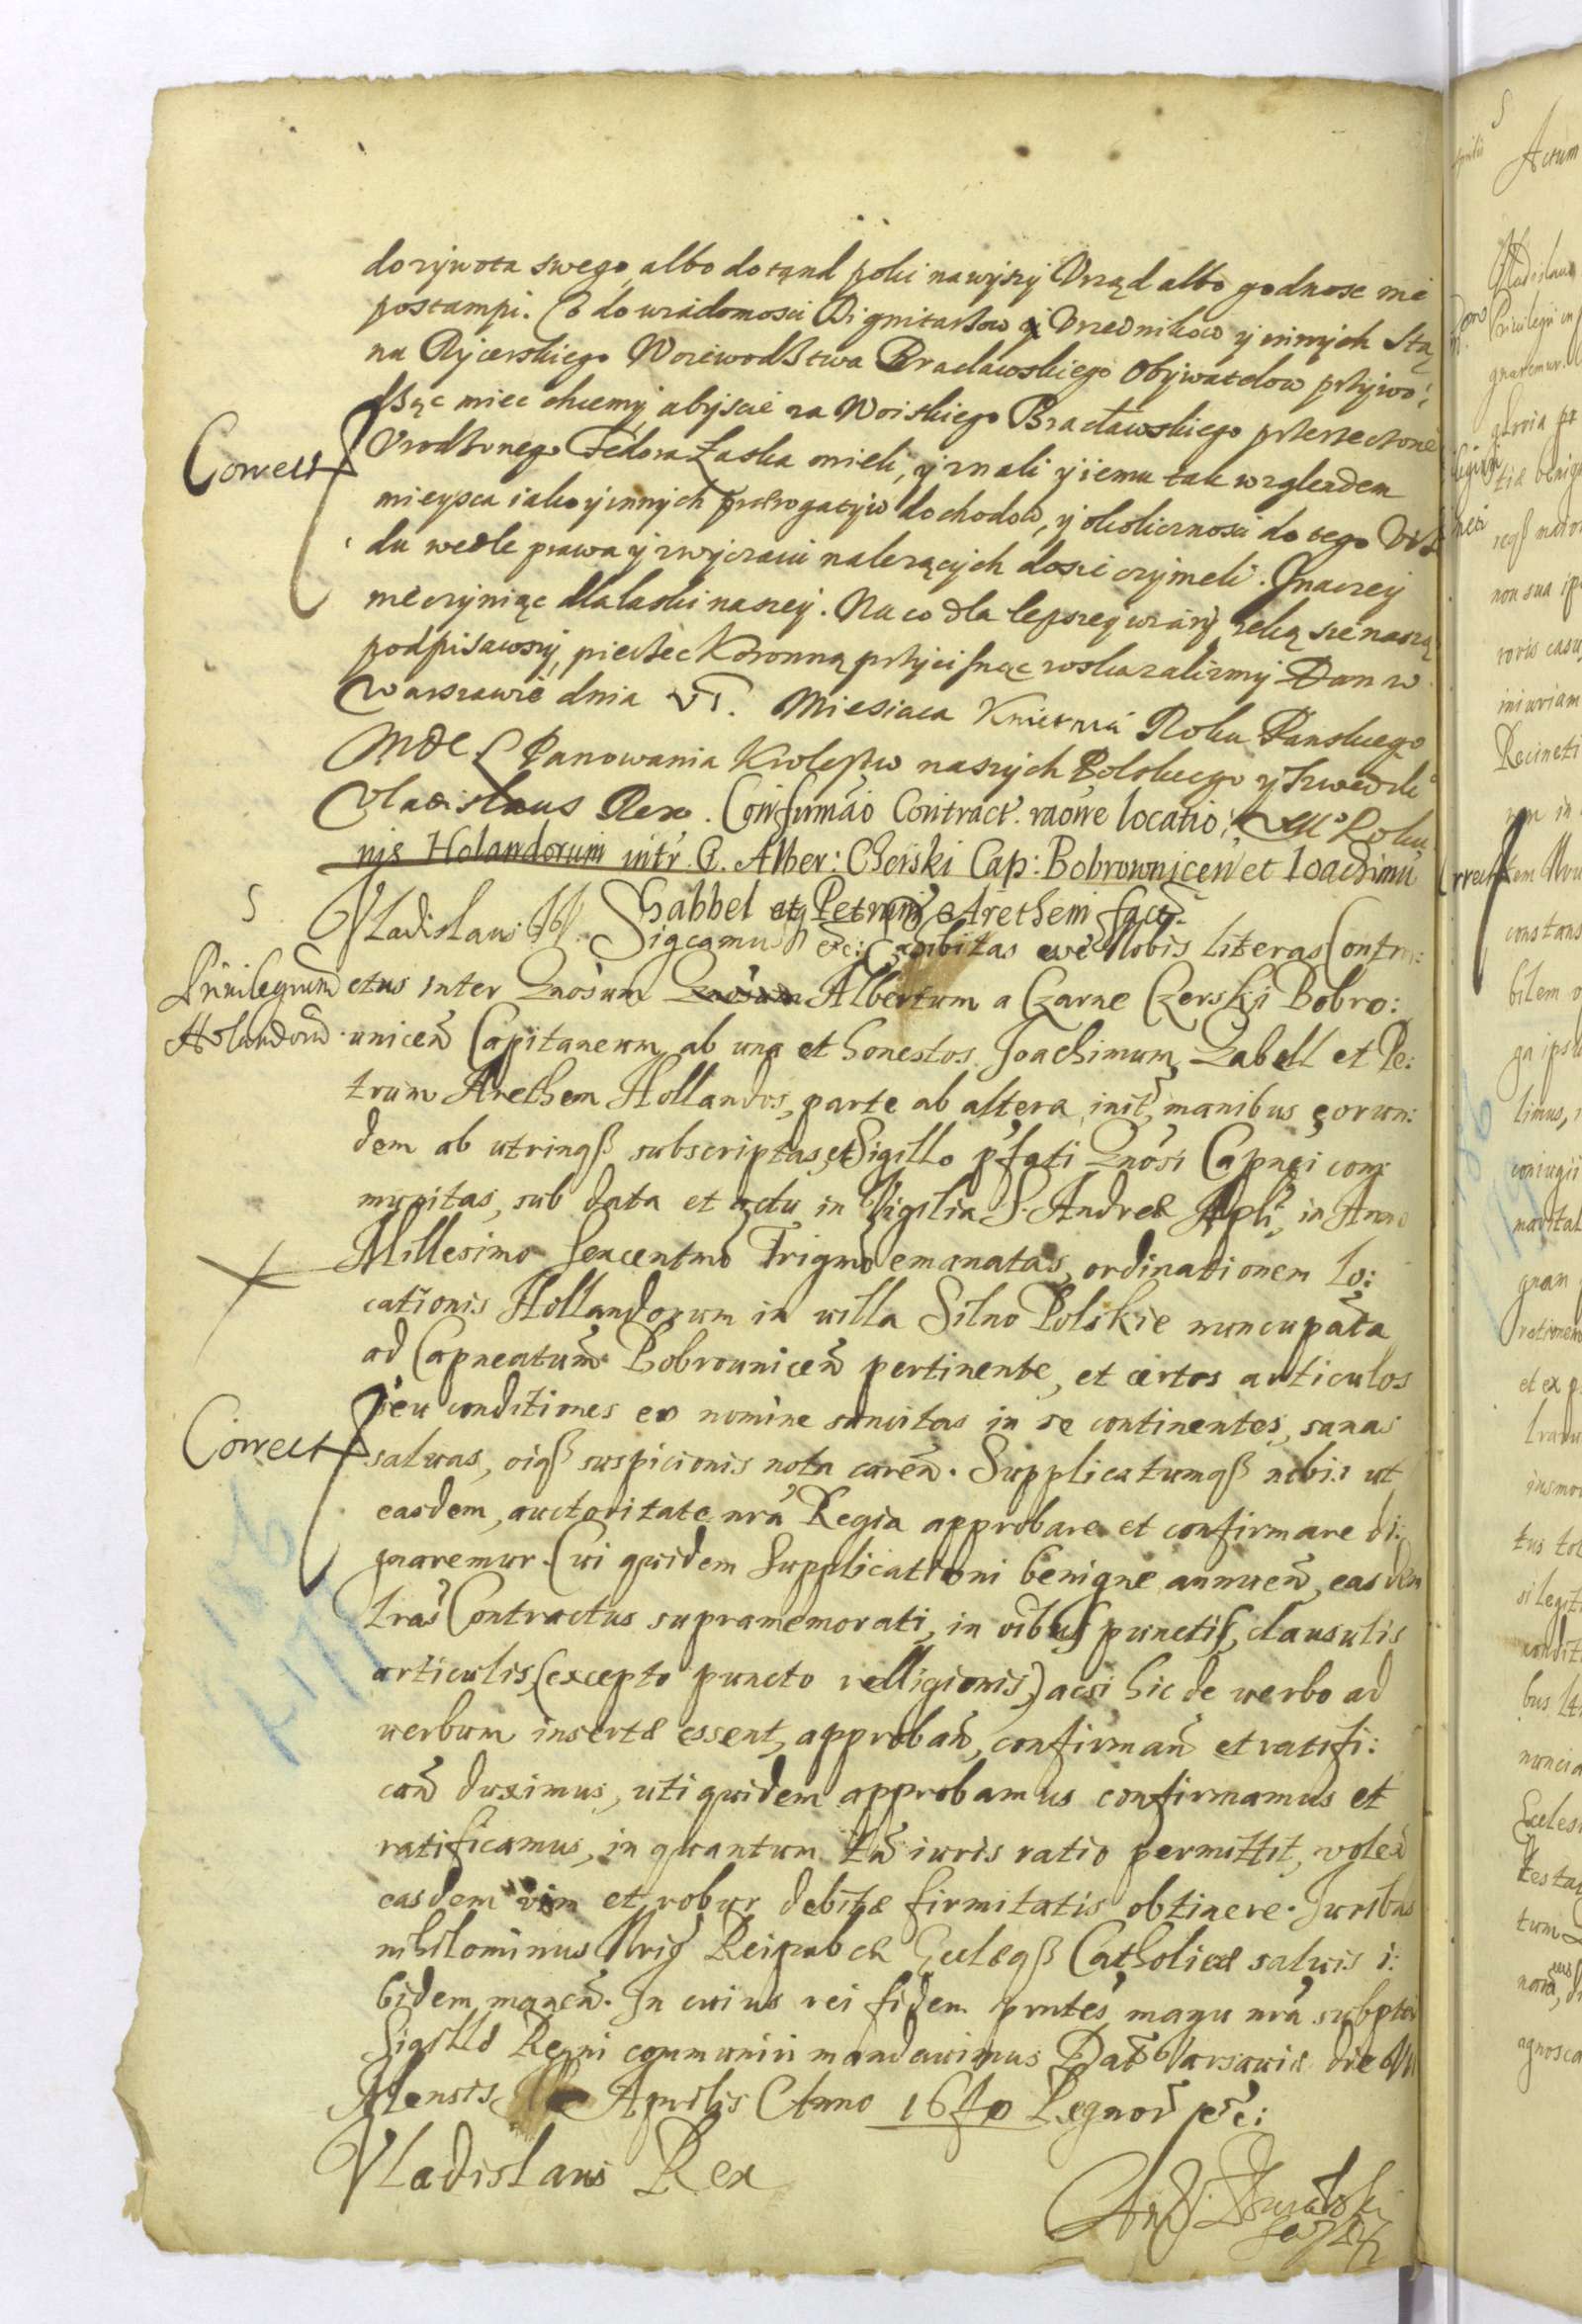 dozywota swego, albo dotąnd poki nawyszy Vrząd albo godnosc nié
postampi. Co do wiadomosci Dignitarżow y Vrzednikow y innych Stą
nu Rycerskiego Woiewodstwa Bracławskiego Obywatelow przywo:
dsząc miec chcemy, abyscie za Woiskiego Bracławskiego przerzeczone
Correct
Vrodzonego Fedora Łaska mieli, y znali y iemu tak wzgledem
mieysca iako y innych prerogatyw dochodow, y okolicznosci do tego Vrz
du wedle prawa y zwyczaiu nalezących dosic czynieli. Inaczey
nié czyniąc dla laski naszey. Na co dla lepszey wiary ręką się naszą
podpisawszy, pieczec Koronną przycisnąc roskazalismy Dan w
Warszawié dnia VI. Miesiaca Kwietnia Roku Panskiego
MDCL Panowania Krolestw naszych Polskiego y Szwedzki
Vladislaus Rex. Confirmao Contract. raone locatio: Roku
nis Holandorum intr. G. Alber: Cherski Cap: Bobrownicen et Ioachimu
Sabbel et Petrum Arethem fact.
S
Vladislaus IV. Sigcamus etc: Exhibitas ee Nobis literas Contra:
Priuilegium
Holandorum
ctus inter Gnosum Gnosum Albertum a Czarne Czerski Bobro:
unicen Capitaneum ab una et honestos Joachimum Zabell et Pe:
trum Arethem Hollandos, parte ab altera init, manibus eorun:
dem ab utrinqß subscriptas, et Sigillo pfati Gnosi Capnei com:
munitas, sub data et actu in Vigilia S. Andreæ Apli, in Anno
Millesimo Sexcentmo Trigmo emanatas, ordinationem lo:
cationis Hollandorum in uilla Silno Polskie nuncupata
ad Capneatum Bobrounicen pertinente, et certos articulos
Correct
seu conditiones eo nomine sancitas in se continentes, sanas
saluas, oiqß suspicionis nota caren. Supplicatumqß nobis ut
easdem, auctoritate nra Regia approbare et confirmare di:
gnaremur. Cui quidem Supplicationi benigne annuen, easdem
Lras Contractus supramemorati, in oibus punctis, clausulis
articulis, (excepto puncto relligionis) acsi hic de uerbo ad
uerbum insertæ essent, approban, confirman et ratifi:
can duximus, uti quidem approbamus confirmamus et
ratificamus, in quantum tn iuris ratio permittit, volen
easdem uim et robur debitæ firmitatis obtinere. Juribus
nihilominus Nris Reipub cæ Ecclæqß Catholicæ saluis i:
bidem manen. In cuius rei fidem pntes manu nra subptas
Sigillo Regni communiri mandauimus Dat Varsauiæ die VI
Mensis Aprilis Anno 1640 Regnor etc:
Vladislaus Rex